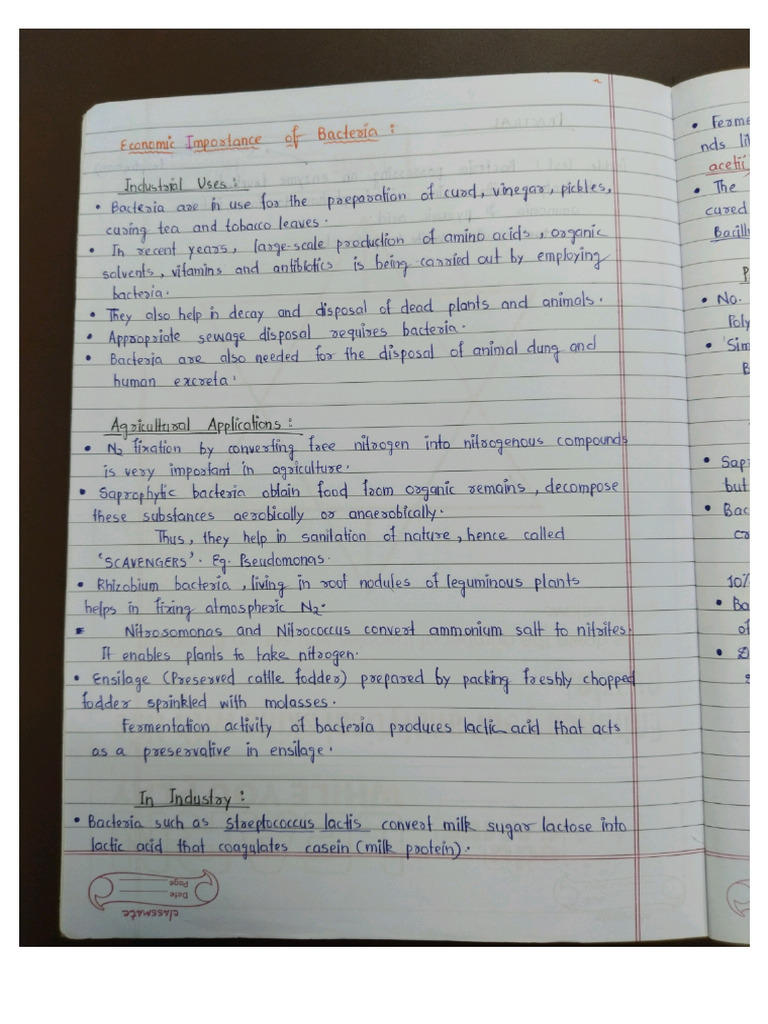 Economic Importance of Bacteria :
Industrial Uses :
• Bacteria are in use for the preparation of curd, vinegar, pickles,
curing tea and tobacco leaves.
• In recent years, large-scale production of amino acids, organic
solvents, vitamins and antibiotics is being carried out by employing
bacteria.
• They also help in decay and disposal of dead plants and animals.
• Appropriate sewage disposal requires bacteria.
• Bacteria are also needed for the disposal of animal dung and
human excreta.
Agricultural Applications :
• N2 fixation by converting free nitrogen into nitrogenous compounds
is very important in agriculture.
• Saprophytic bacteria obtain food from organic remains, decompose
these substances aerobically or anaerobically.
Thus, they help in sanitation of nature, hence called
'SCAVENGERS'. Eg. Pseudomonas.
• Rhizobium bacteria, living in root nodules of leguminous plants
helps in fixing atmospheric N2.
Nitrosomonas and Nitrococcus convert ammonium salt to nitrites.
It enables plants to take nitrogen.
• Ensilage (Preserved cattle fodder) prepared by packing freshly chopped
fodder sprinkled with molasses.
Fermentation activity of bacteria produces lactic acid that acts
as a preservative in ensilage.
In Industry :
• Bacteria such as Streptococcus lactis convert milk sugar lactose into
lactic acid that coagulates casein (milk protein).
classmate
Date
Page
• Ferme
nds li
aceti
• The
cured
Bacill
P
• No.
Poly
• 'Sim
B
• Sap
but
• Bac
co
10%
• Ba
of
• D